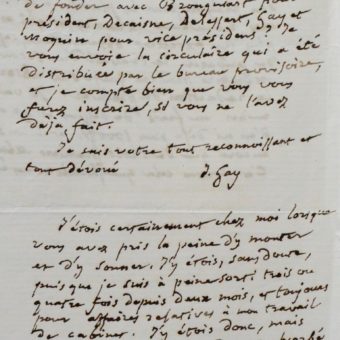 de fonder avec Brongniart pour
président, Decaisne, Delessert, Gay et
Moquin pour vice présidens? Je
vous envoie la circulaire qui a été
distribuée par le bureau provisoire,
et je compte bien que vous vous
ferez inscrire, si vous ne l'avez
déjà fait.
Je suis votre tout reconnoissant et
tout dévoué
J. Gay
J'étois certainement chez moi lorsque
vous avez pris la peine d'y monter
et d'y sonner. J'y étois, sans doute,
puisque je suis à peine sorti trois ou
quatre fois depuis deux mois, et toujours
pour affaires relatives à mon travail
de cabinet. J'y étois donc, mais